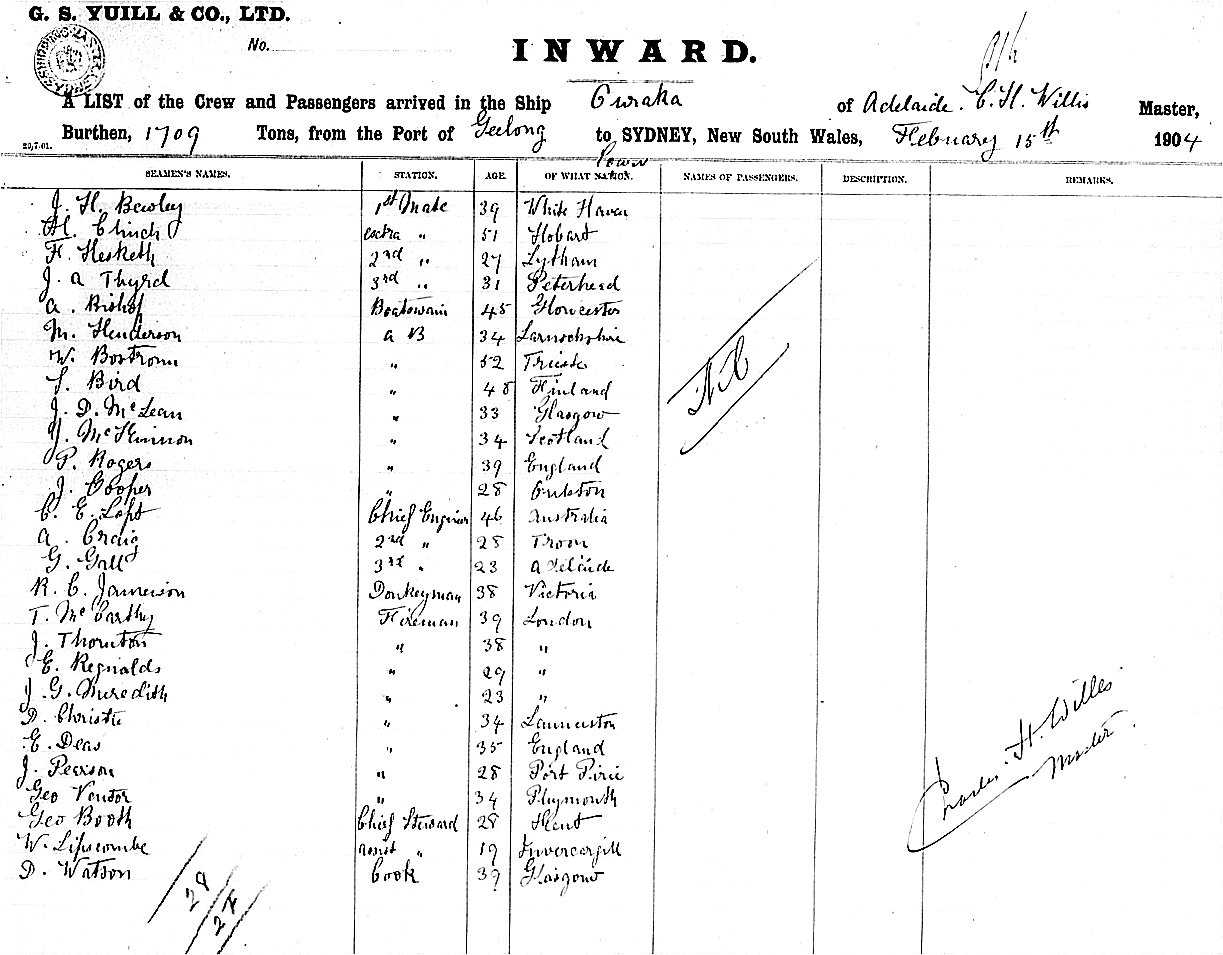 G. S. YUILL & CO., LTD.
No.
INWARD.
A LIST of the Crew and Passengers arrived in the Ship Owraka of Adelaide. C. H. Willis Master,
Burthen, 1709 Tons, from the Port of Geelong to SYDNEY, New South Wales, February 15th 1904
23,7.01.
Town
SEAMEN'S NAMES. STATION. AGE. OF WHAT NATION. NAMES OF PASSENGERS. DESCRIPTION. REMARKS.
J. H. Bewley 1st Mate 39 White Haven
H. Clinch extra " 51 Hobart
F. Hesketh 2nd " 27 Lytham
J. a Thyrd 3rd " 31 Peterhead
a. Bishop Boatswain 45 Gloucester
M. Henderson a B 34 Larnockshire
W. Bostrom " 52 Trieste
Bird " 48 Finland
J. D. McLean " 33 Glasgow
J. McKinnon " 34 Scotland
P. Rogers " 39 England
J. Cooper " 28
C. E. Loft Chief Engineer 46 Australia
a. Craig 2nd " 28 Troon
G. Gall 3rd " 23 adelaide
R. C. Jamieson Donkeyman 38 Victoria
T. McCarthy Fireman 39 London
J. Thornton " 38 "
E. Regnalds " 29 "
J. G. Meredith " 23 "
D. Christie " 34 Launceston
E. Deas " 35 England
J. Pearson " 28 Port Pirie
Geo Ventor " 34 Plymouth
Geo Booth Chief Steward 28 Kent
W. Lipscombe assist " 19 Invercargill
D. Watson Cook 39 Glasgow
Charles. H. Willis
Master
28